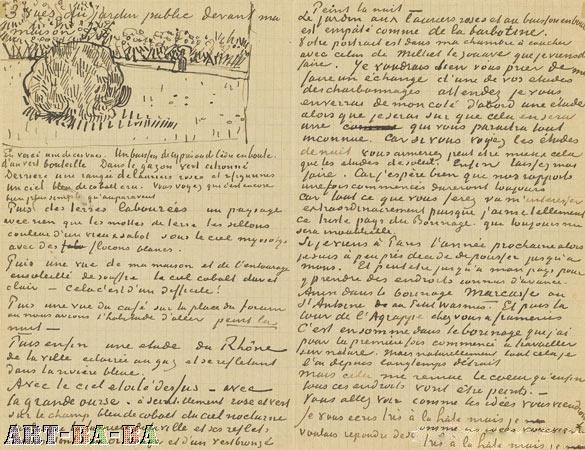 3 vues du jardin public devant ma
maison
En voici une des cernes. Un buisson de cyprès de cèdre en boule
d'un vert bouteille Dans le gazon vert citronné
Derrière une rangée de lauriers roses et 2 figurines
un ciel bleu de cobalt cru. Vous voyez que c'est encore
bien plus simple qu'auparavant
Puis des terres labourées un paysage
avec rien que les mottes de terre les sillons
couleur d'un vieux sabot sous le ciel myosotys
avec des flocons blancs
Puis une vue de ma maison et de l'entourage
ensoleillé de souffre le ciel cobalt dur et
clair – cela c'est d'un difficile!
Puis une vue du café sur la place du forum
où nous avions l'habitude d'aller peint la
nuit –
Puis enfin une étude du Rhône
de la ville éclairée au gaz et se reflétant
dans la rivière bleue.
Avec le ciel étoilé dessus – avec
la grande ourse – à scintillement rose et vert
sur le champ bleu de cobalt du ciel nocturne
de la ville et ses reflets
et d'un vert bronzé
ART-BA-BA
Peint la nuit
Le jardin aux lauriers roses et au buisson en boule
est empâté comme de la barbotine.
Votre portrait est dans ma chambre à coucher
avec celui de Milliet le zouave que je viens de
faire. Je voudrais bien vous prier de me
faire un échange d'une de vos études
des charbonnages attendez je vous
enverrai de mon côté d'abord une étude
alors que je serai sûr que cela en sera
une qui vous paraitra tout
inconnue. Car si vous voyez les études
de nuit vous aimerez peut être mieux cela
que les études de soleil. Enfin laissez moi
faire. Car j'espère bien que nos rapports
une fois commencés dureront toujours
Car tout ce que vous ferez va m'intéresser
extraordinairement puisque j'aime tellement
ce triste pays du Borinage qui toujours me
sera inoubliable.
Si je viens à Paris l'année prochaine alors
je suis à peu près décidé de pousser jusqu'à
mons. Et peut être jusqu'à mon pays pour
y prendre des endroits connus d'avance.
Ainsi dans le borinage Marcasse ou
St Antoine de Petit Wasmes. Et puis la
cour de l'Agrappe chez vous à frameries
C'est en somme dans le borinage que j'ai
pour la première fois commencé à travailler
sur nature. Mais naturellement tout cela je
l'ai depuis longtemps détruit
mais cela me remue le coeur qu'enfin
tous ces endroits vont être peints. –
Vous allez voir comme les idées vous viendront
je vous ecris très à la hâte mais je
voulais repondre de